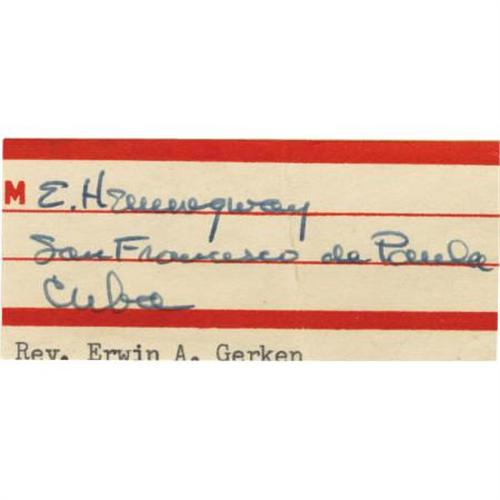 M E. Hemingway
San Francisco de Paula
Cuba
Rev. Erwin A. Gerken